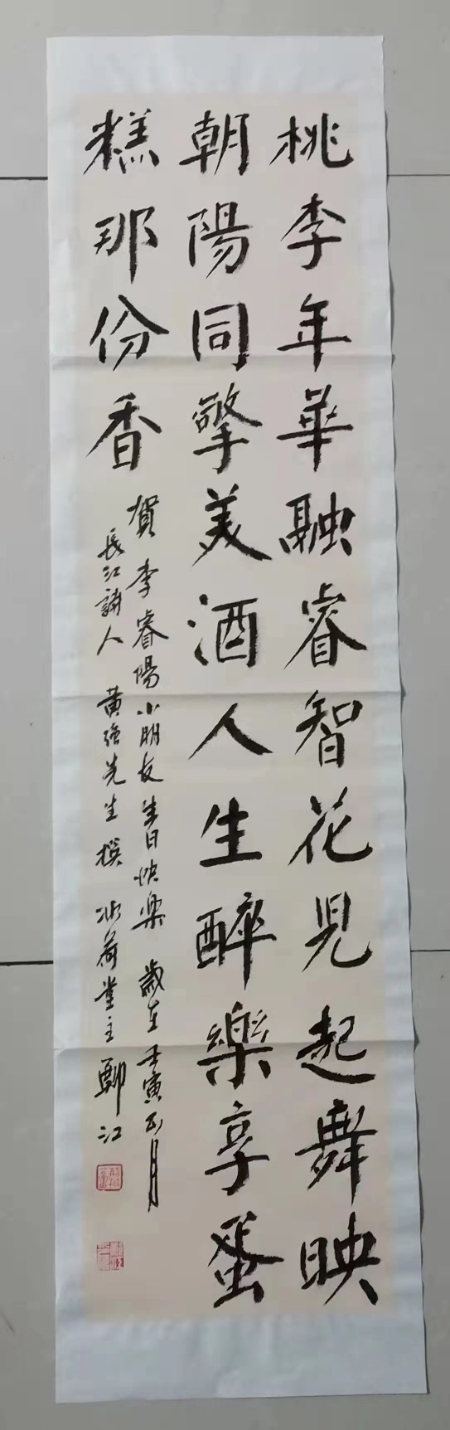 桃李年華融睿智花児起舞映
朝陽同擎美酒人生醉樂享蛋
糕那份香
賀李睿陽小朋友生日快樂 歲在壬寅五月
長江詩人 黄強先生撰 冰荷堂主鄭江